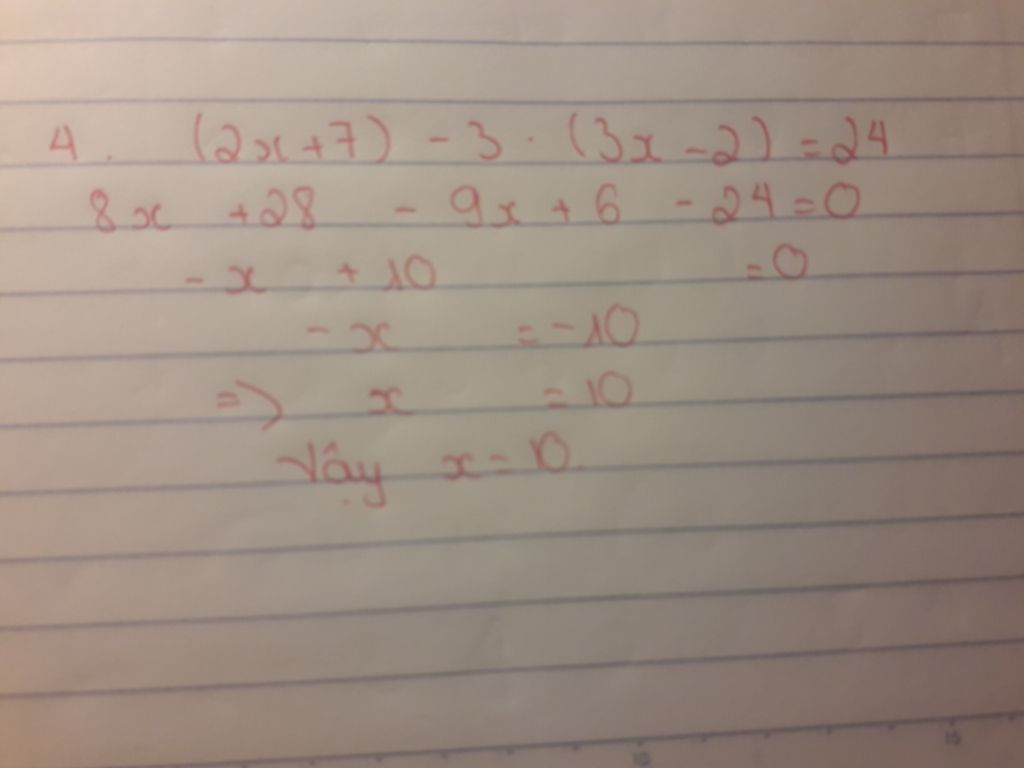 4. (2x+7) - 3 . (3x - 2) = 24
8x + 28 - 9x + 6 - 24 = 0
- x + 10 = 0
- x = - 10
=> x = 10
Vậy x = 10.
10 15